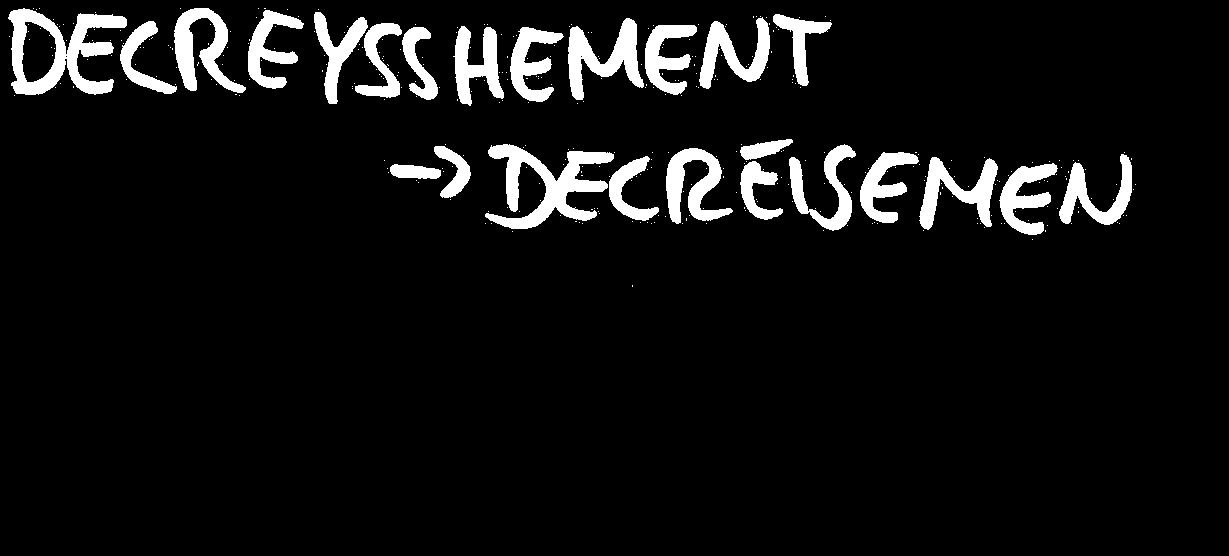 DECREYSSHEMENT
→ DECRÉISEMEN